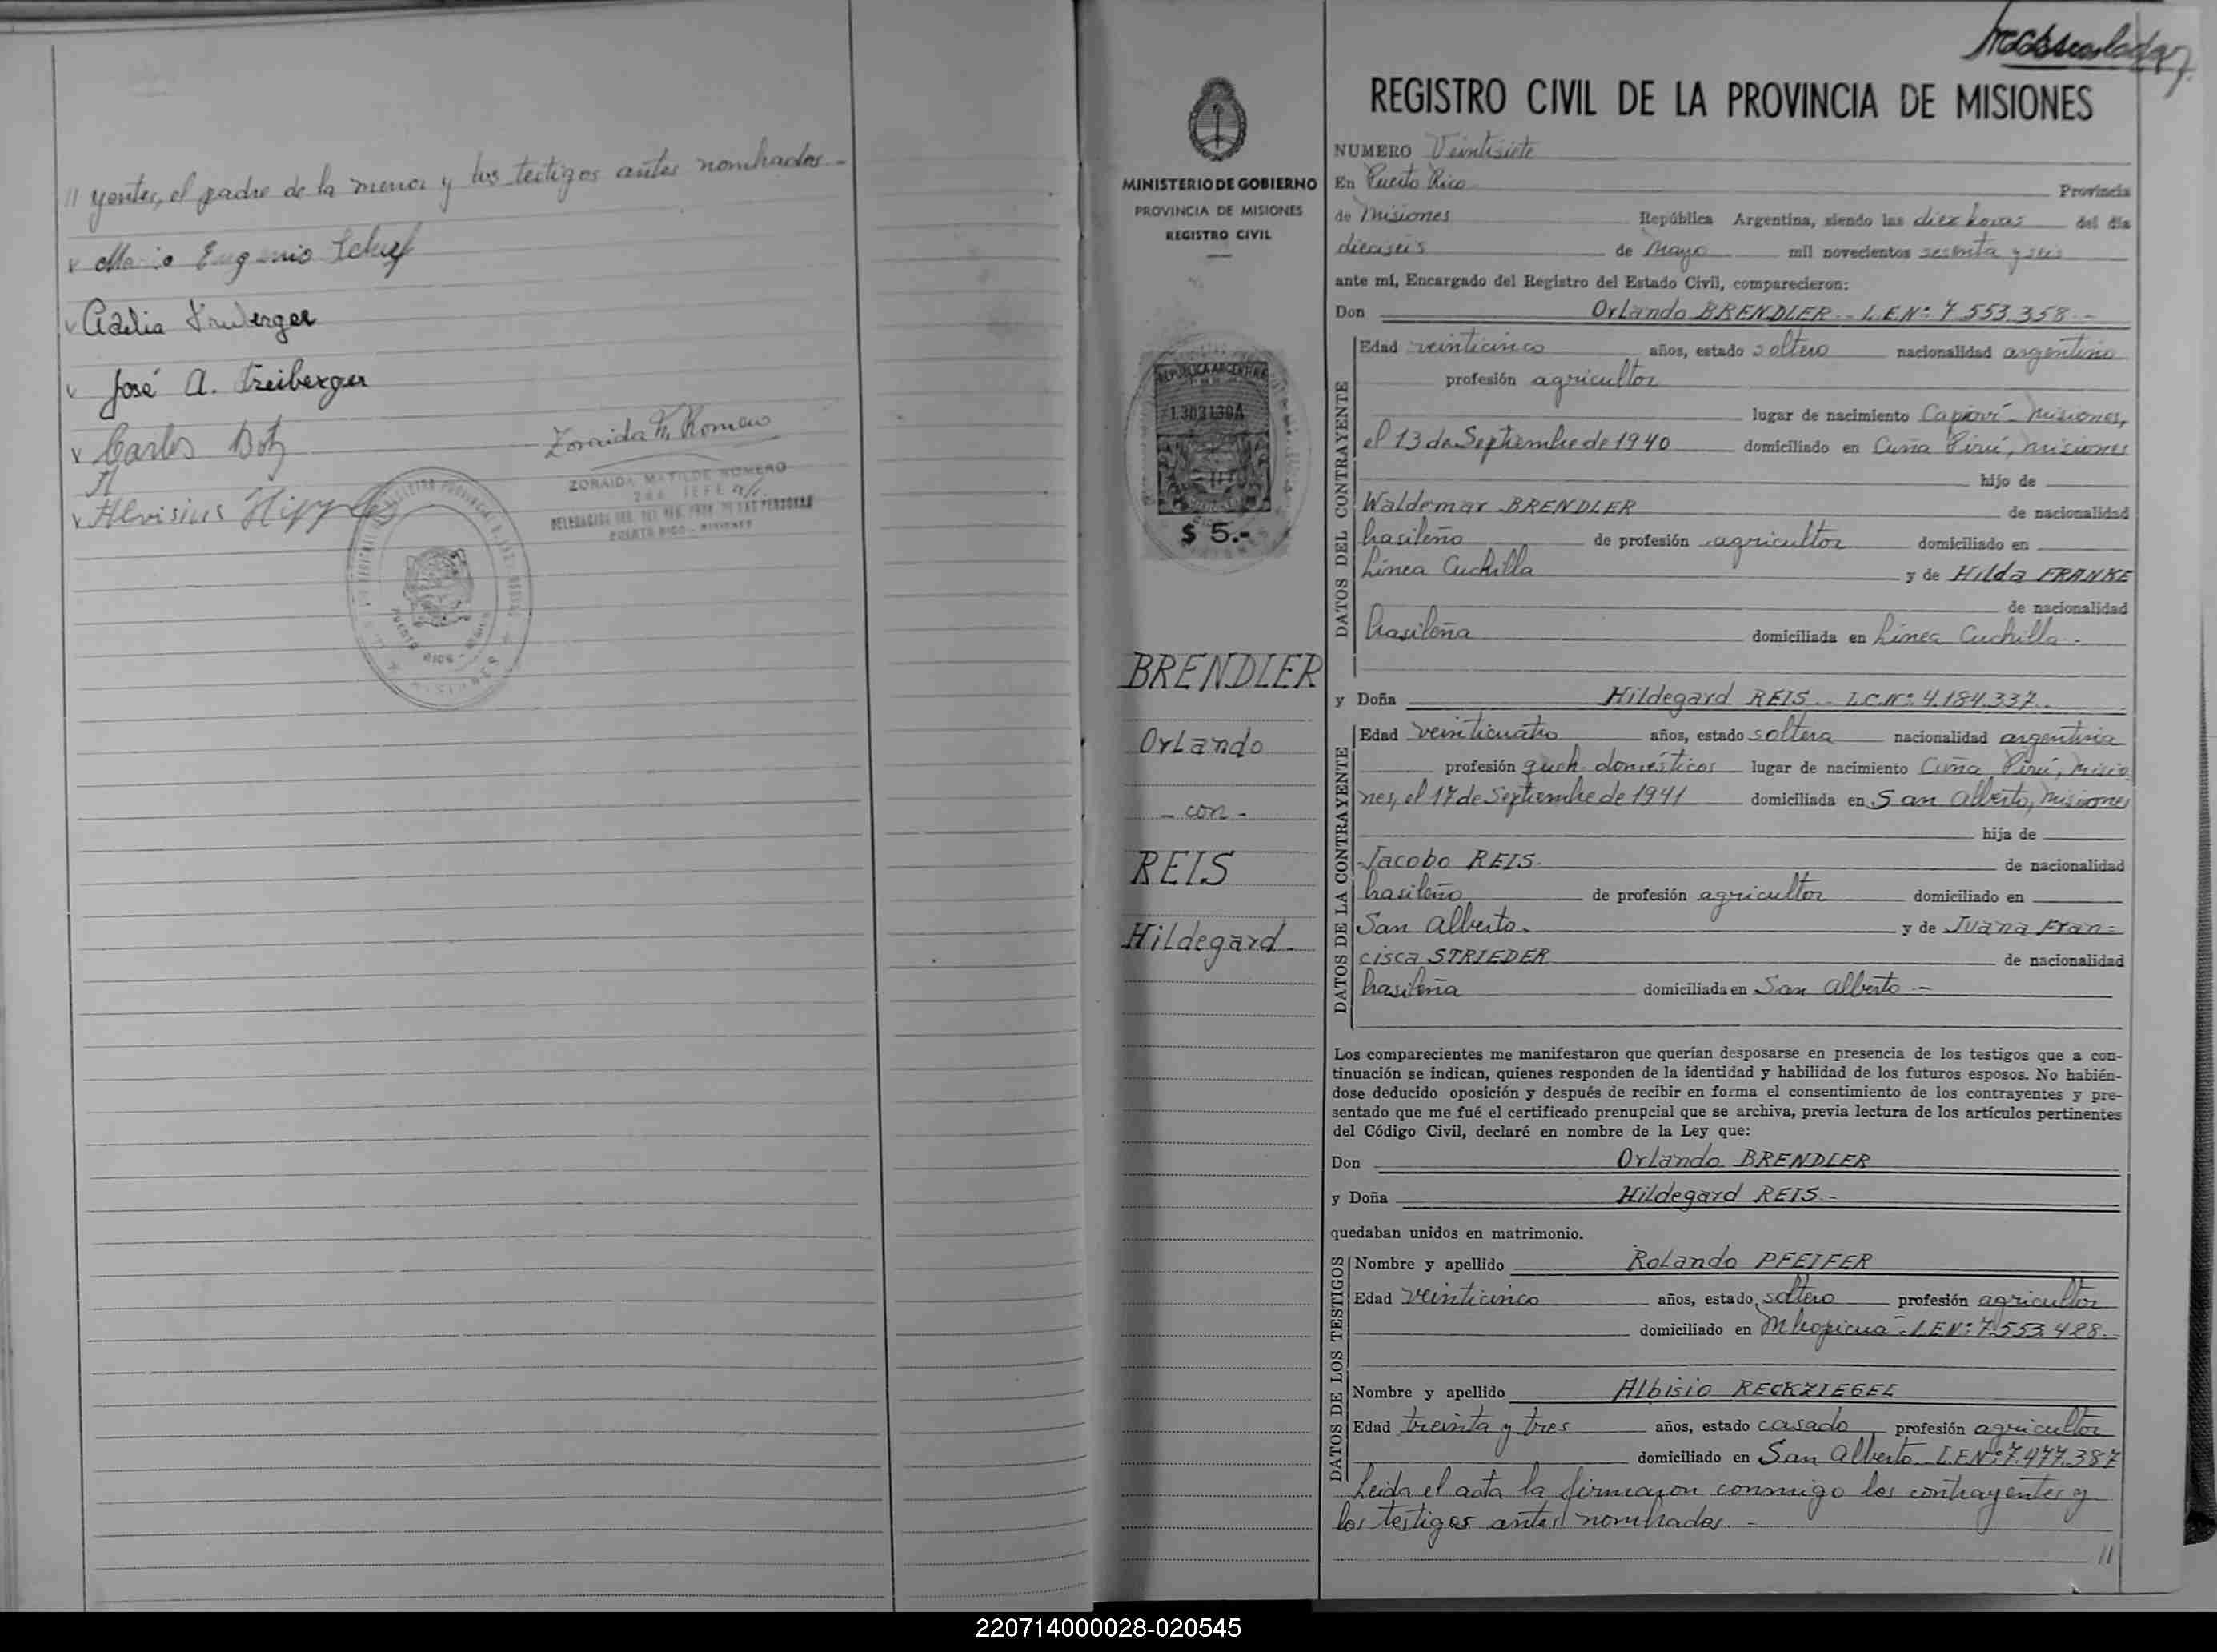 // yentes, el padre de la menor y los testigos antes nombrados.-
Mario Eugenio
José A. Freiberger
Carlos
Zoraida M. Romero
ZORAIDA MATILDE ROMERO
PUERTO RICO - MISIONES
MINISTERIO DE GOBIERNO
PROVINCIA DE MISIONES
REGISTRO CIVIL
REPUBLICA ARGENTINA
$ 5.-
BRENDLER
Orlando
- con -
REIS
Hildegard.
REGISTRO CIVIL DE LA PROVINCIA DE MISIONES
NUMERO Veintisiete
En Puerto Rico Provincia
de Misiones República Argentina, siendo las diez horas del día
dieciseis de Mayo mil novecientos sesenta y seis
ante mí, Encargado del Registro del Estado Civil, comparecieron:
Don Orlando BRENDLER.- L.E.Nº 7.553.358.-
DATOS DEL CONTRAYENTE
Edad veinticinco años, estado soltero nacionalidad argentino
profesión agricultor
lugar de nacimiento Capioví - Misiones,
el 13 de Septiembre de 1940 domiciliado en Cuña Pirú, Misiones
hijo de
Waldemar BRENDLER de nacionalidad
brasileño de profesión agricultor domiciliado en
Línea Cuchilla y de Hilda FRANKE
de nacionalidad
brasileña domiciliada en Línea Cuchilla.-
y Doña Hildegard REIS.- L.C.Nº 4.184.337.
DATOS DE LA CONTRAYENTE
Edad veinticuatro años, estado soltera nacionalidad argentina
profesión queh. domésticos lugar de nacimiento Cuña Pirú, Misio
nes, el 17 de Septiembre de 1941 domiciliada en San Alberto, Misiones
hija de
Jacobo REIS. de nacionalidad
brasileño de profesión agricultor domiciliado en
San Alberto. y de Juana Fran=
cisca STRIEDER de nacionalidad
brasileña domiciliada en San Alberto.-
Los comparecientes me manifestaron que querían desposarse en presencia de los testigos que a con-
tinuación se indican, quienes responden de la identidad y habilidad de los futuros esposos. No habién-
dose deducido oposición y después de recibir en forma el consentimiento de los contrayentes y pre-
sentado que me fué el certificado prenupcial que se archiva, previa lectura de los artículos pertinentes
del Código Civil, declaré en nombre de la Ley que:
Don Orlando BRENDLER
y Doña Hildegard REIS.-
quedaban unidos en matrimonio.
DATOS DE LOS TESTIGOS
Nombre y apellido Rolando PFEIFER
Edad veinticinco años, estado soltero profesión agricultor
domiciliado en Mbopicuá - L.E.Nº 7.553.428.-
Nombre y apellido Albisio RECKZIEGEL
Edad treinta y tres años, estado casado profesión agricultor
domiciliado en San Alberto - L.E.Nº 7.477.387
Leida el acta la firmaron conmigo los contrayentes y
los testigos antes nombrados.-
//
220714000028-020545